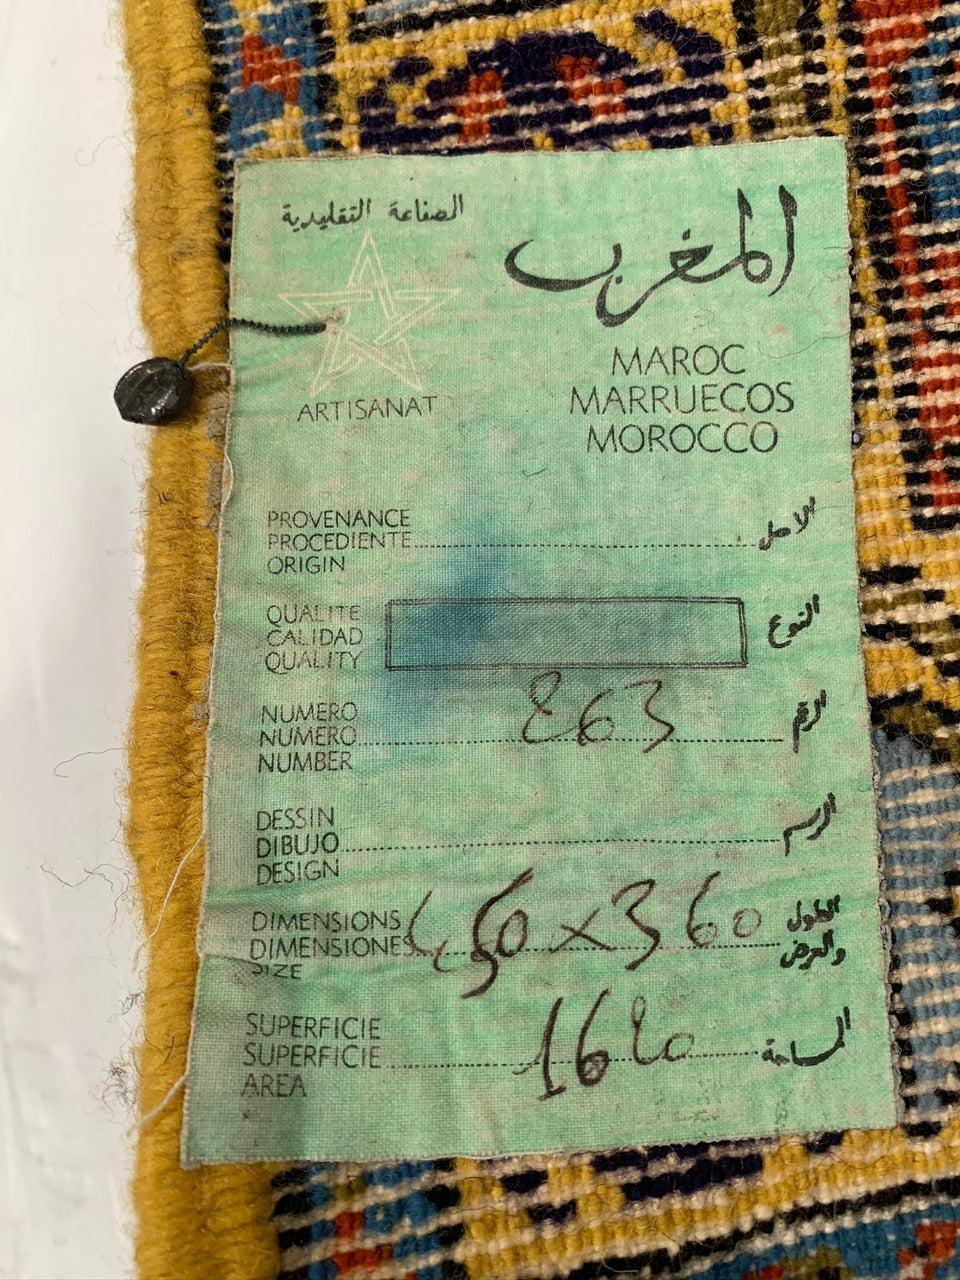 الصناعة التقليدية
المغرب
ARTISANAT
MAROC
MARRUECOS
MOROCCO
PROVENANCE
PROCEDIENTE
ORIGIN
الاصل
QUALITE
CALIDAD
QUALITY
النوع
NUMERO
NUMERO
NUMBER
863
الرقم
DESSIN
DIBUJO
DESIGN
الرسم
DIMENSIONS
DIMENSIONES
SIZE
4,50 x 3 60
الطول
والعرض
SUPERFICIE
SUPERFICIE
AREA
1620
المساحة